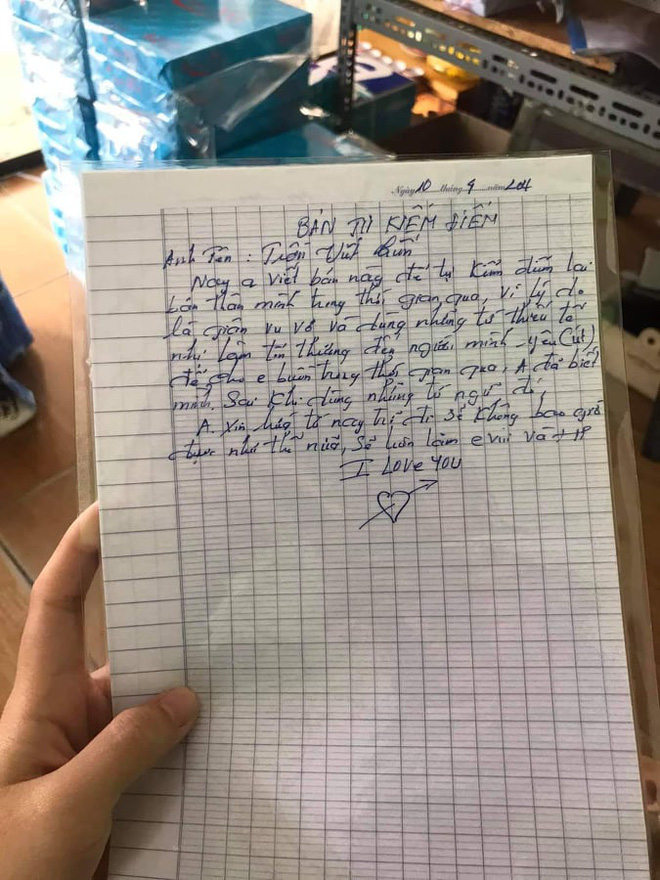 Ngày 10 tháng 9 năm 201
BẢN TỰ KIỂM ĐIỂM
Anh Tên : Trần Viết
Nay a viết bản này để tự kiểm điểm lại
bản thân mình trong thời gian qua, vì lý do
là giận vu vơ và dùng những từ thiếu tế
nhị làm tổn thương đến người mình yêu (út),
để cho e buồn trong thời gian qua, A đã biết
mình sai khi dùng những từ ngữ đó,
A. xin hứa từ nay trở đi sẽ không bao giờ
được như thế nữa, sẽ luôn làm e vui và + HP
I Love YOU